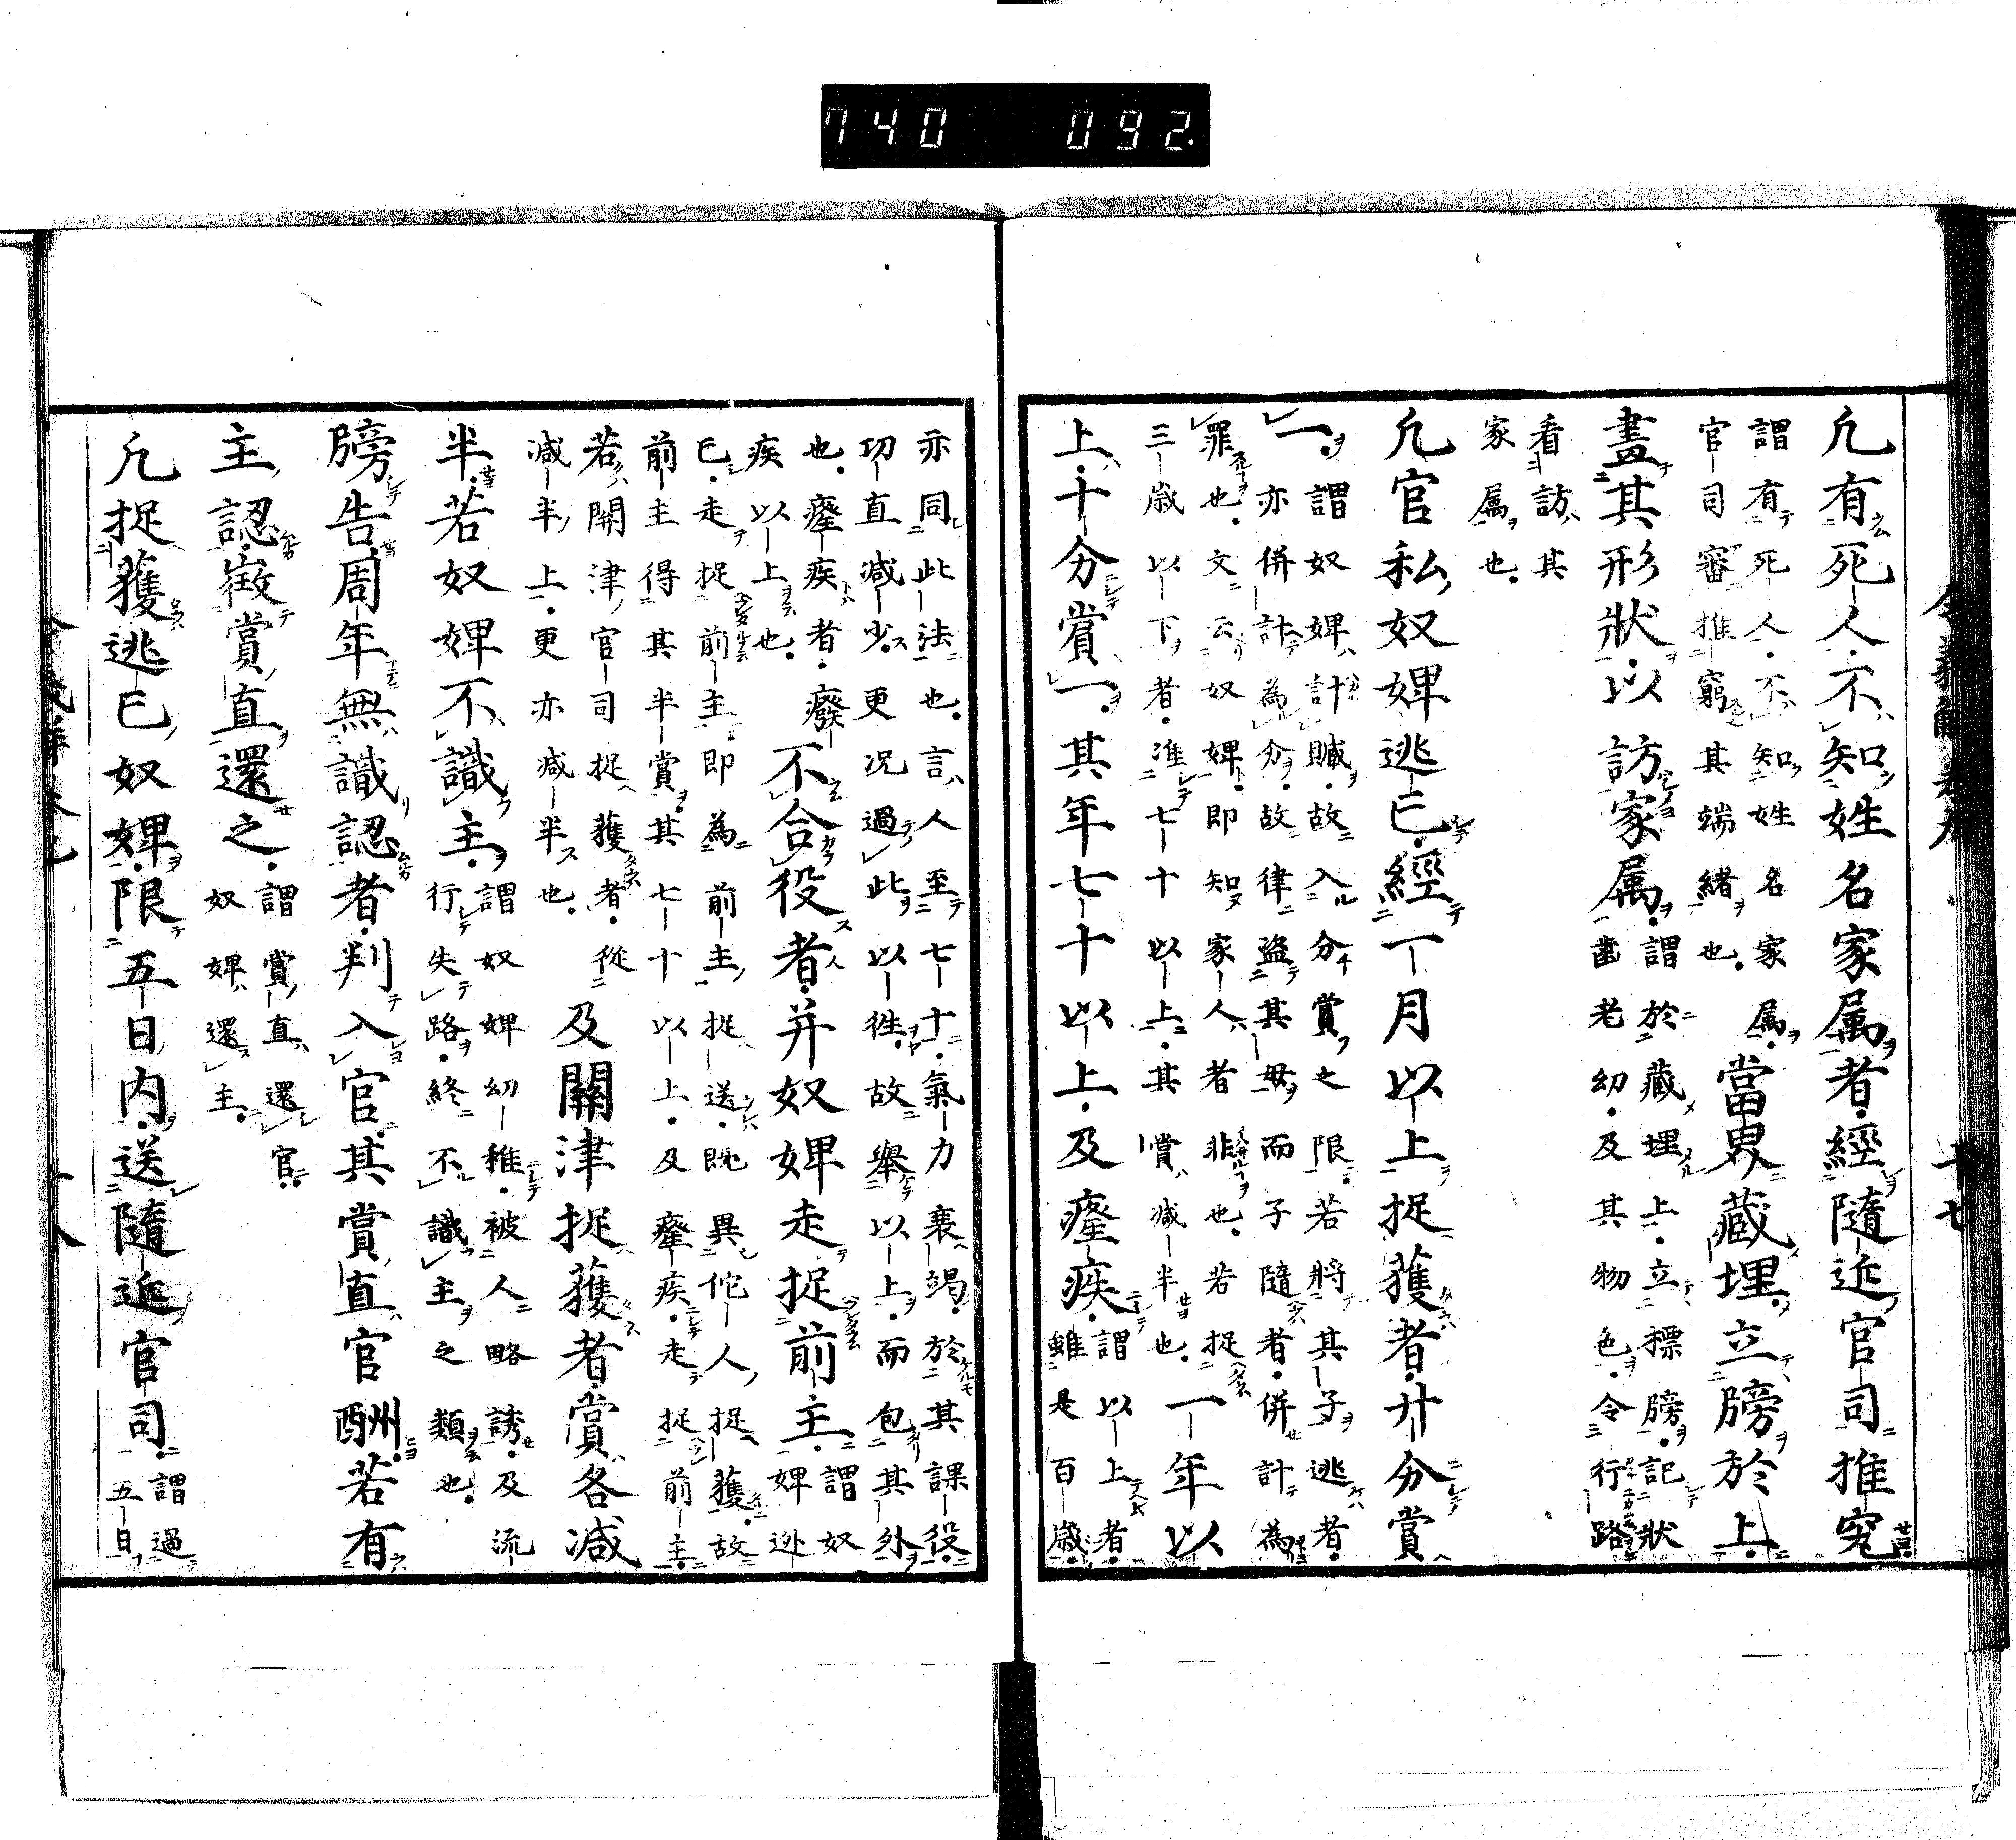 740 092.
凢有死人不知姓名家属者經隨近官司推究
謂有死人不知姓名家属
官司審推窮其端緒也
當界藏埋立牓於上
畫其形狀以訪家属
謂於藏埋上立標牓記狀
齒老幼及其物色令行路
看訪其
家属也
凢官私奴婢逃亡經一月以上捉獲者廿分賞
一
謂奴婢計贓故入分賞之限若將其子逃者
亦併計為分故律盜其母而子隨者併計為
罪也文云奴婢即知家人者非也若捉
三歲以下者准七十以上其賞減半也
一年以
上十分賞一其年七十以上及癃疾
謂以上者
雖是百歲
亦同此法也言人至七十氣力衰竭於其課役
功直減少更况過此以徃故舉以上而包其外
也癃疾者癈
疾以上也
不合役者并奴婢走捉前主
謂奴
婢逃
亡走捉前主即為前主捉送既異佗人捉獲故
前主得其半賞其七十以上及癃疾走捉前主
若關津官司捉獲者從
減半上更亦減半也
及關津捉獲者賞各减
半若奴婢不識主
謂奴婢幼稚被人略誘及流
行失路終不識主之類也
牓告周年無識認者判入官其賞直官酬若有
主認徵賞直還之
謂賞直還官
奴婢還主
凢捉獲逃亡奴婢限五日内送隨近官司
謂過
五日